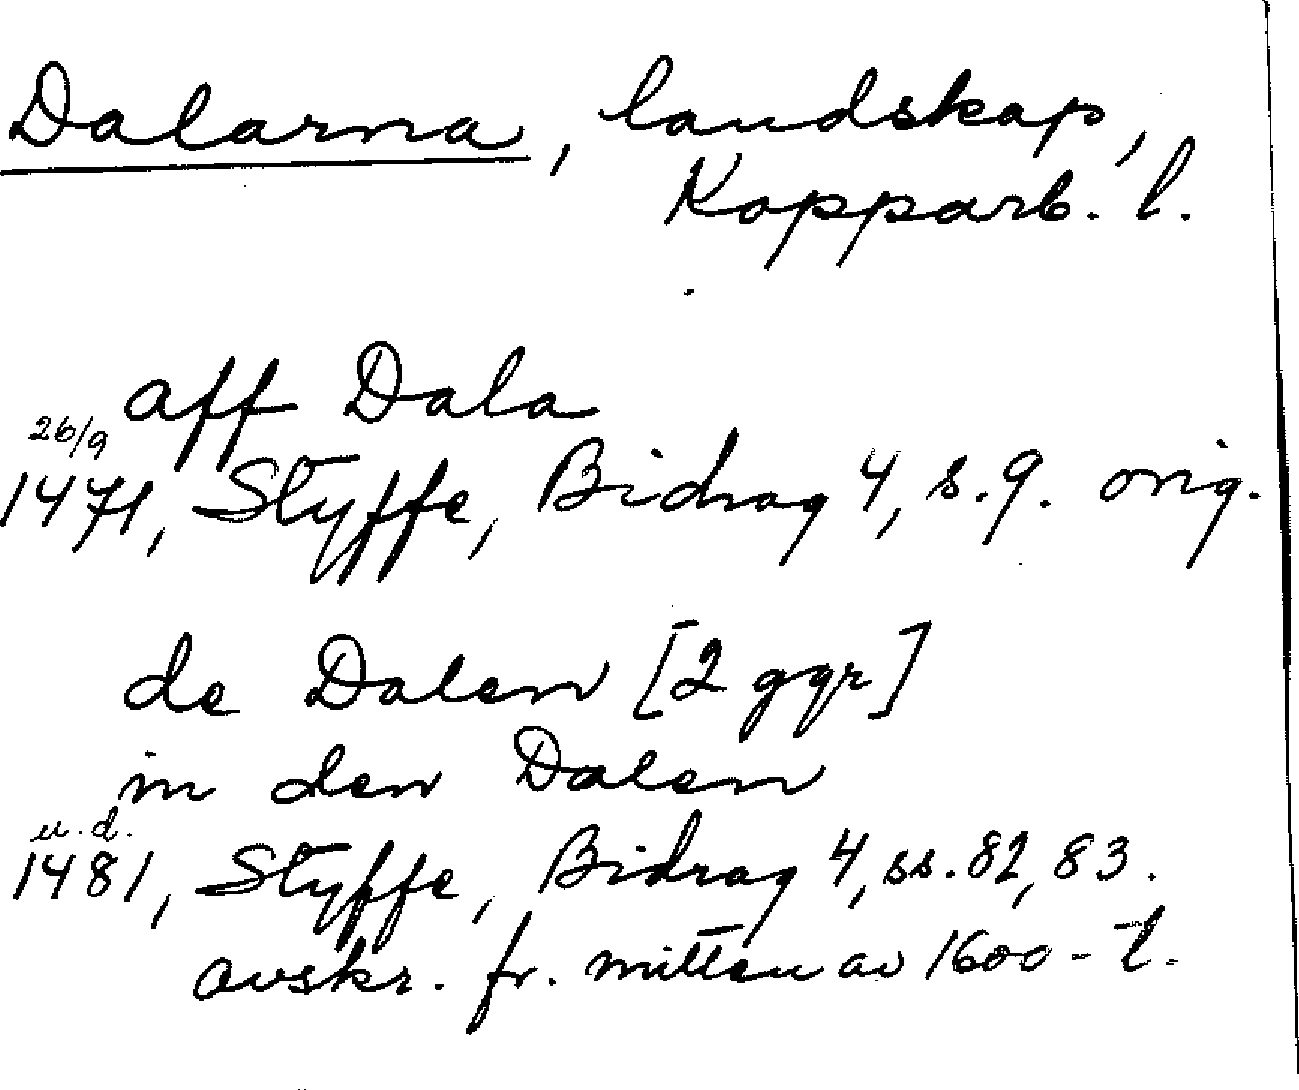 Dalarna, landskap,
Kopparb. l.
aff Dala
26/9
1471, Styffe, Bidrag 4, s. 9. orig.
de Dalen [2 ggr]
in den Dalen
u. d.
1481, Styffe, Bidrag 4, ss. 82, 83.
avskr. fr. mitten av 1600-t.